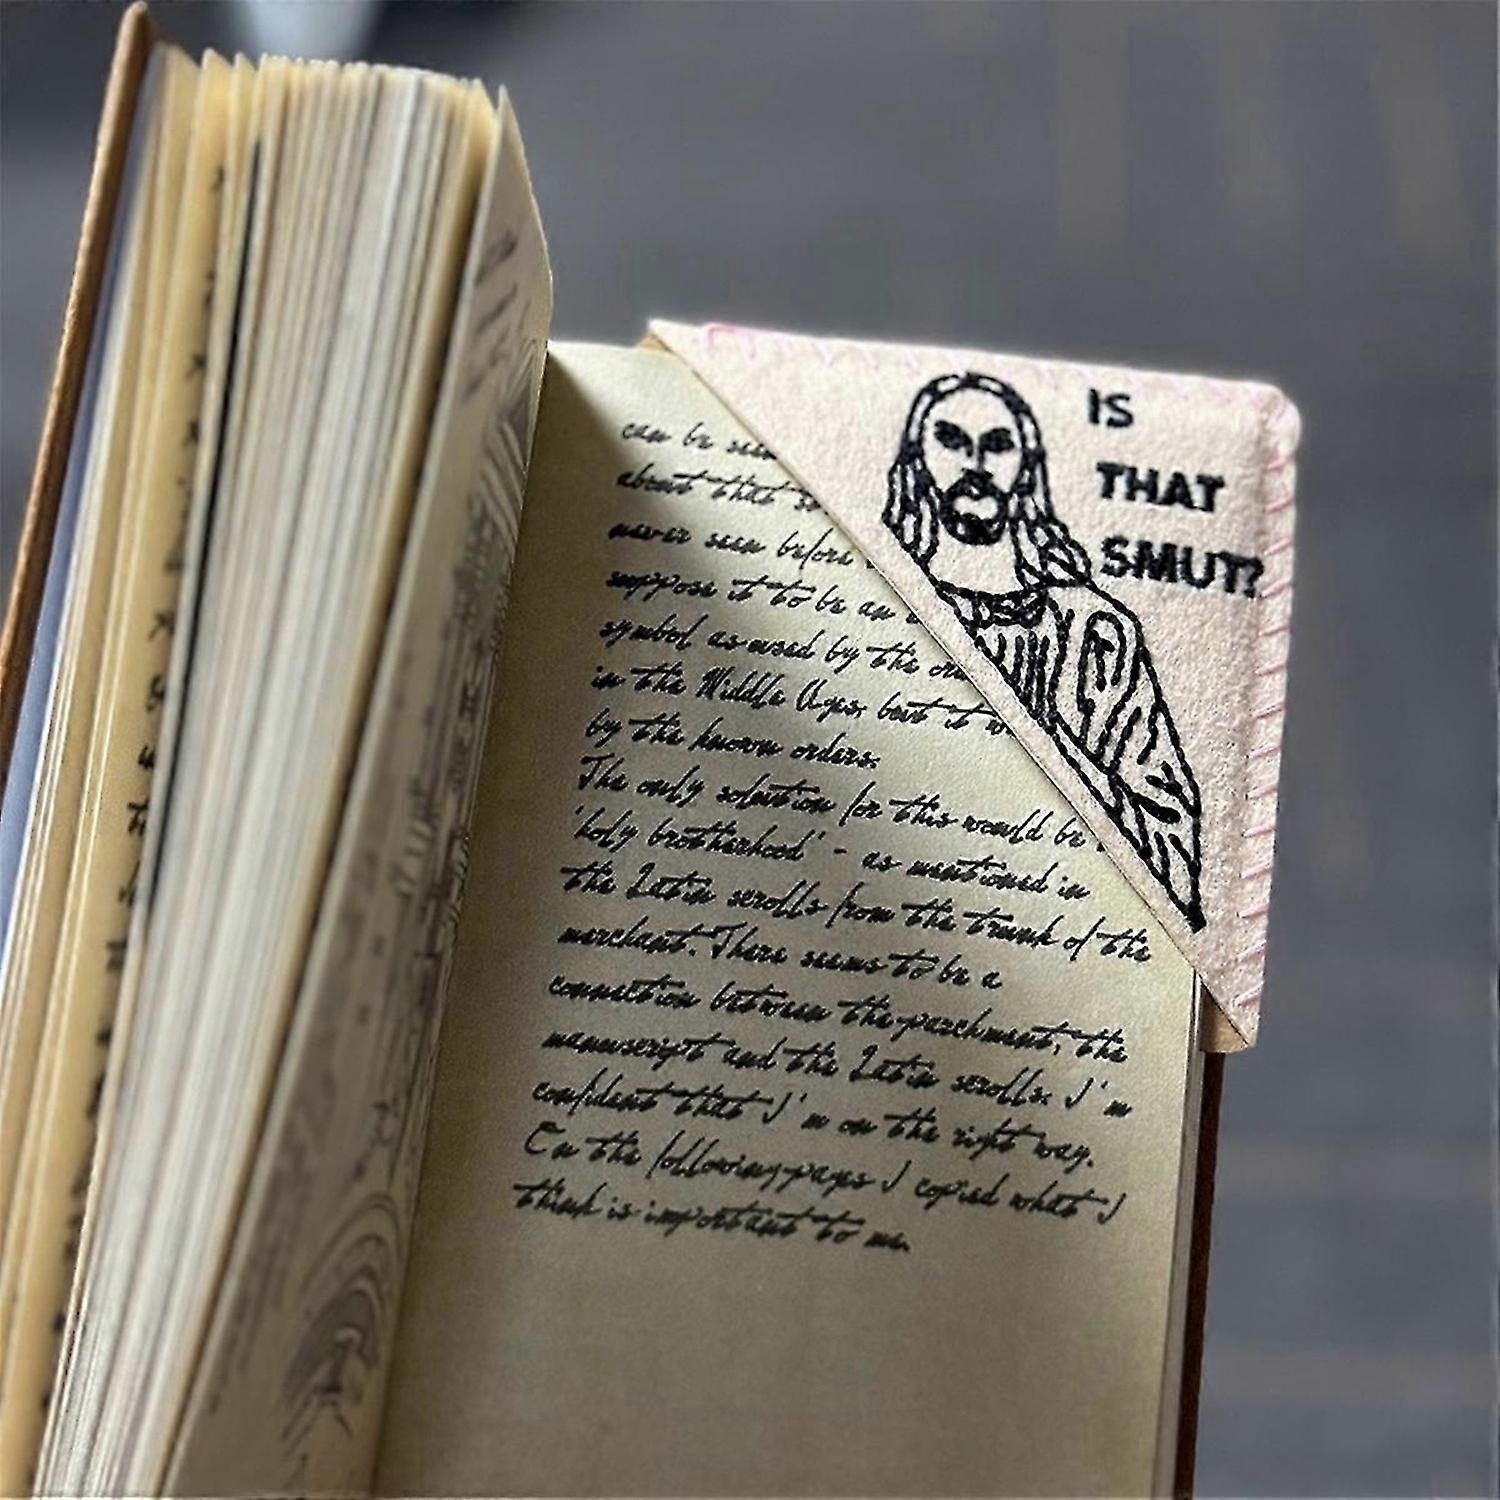 IS
THAT
SMUT?
can be seen
about that
never seen before
suppose it to be an
symbol as used by the
in the Middle Ages, but it
by the known orders.
The only solution for this would be
'holy brotherhood' - as mentioned in
the Latin scrolls from the trunk of the
merchant. There seems to be a
connection between the parchment, the
manuscript and the Latin scrolls. I'm
confident that I'm on the right way.
On the following pages I copied what I
think is important to me.